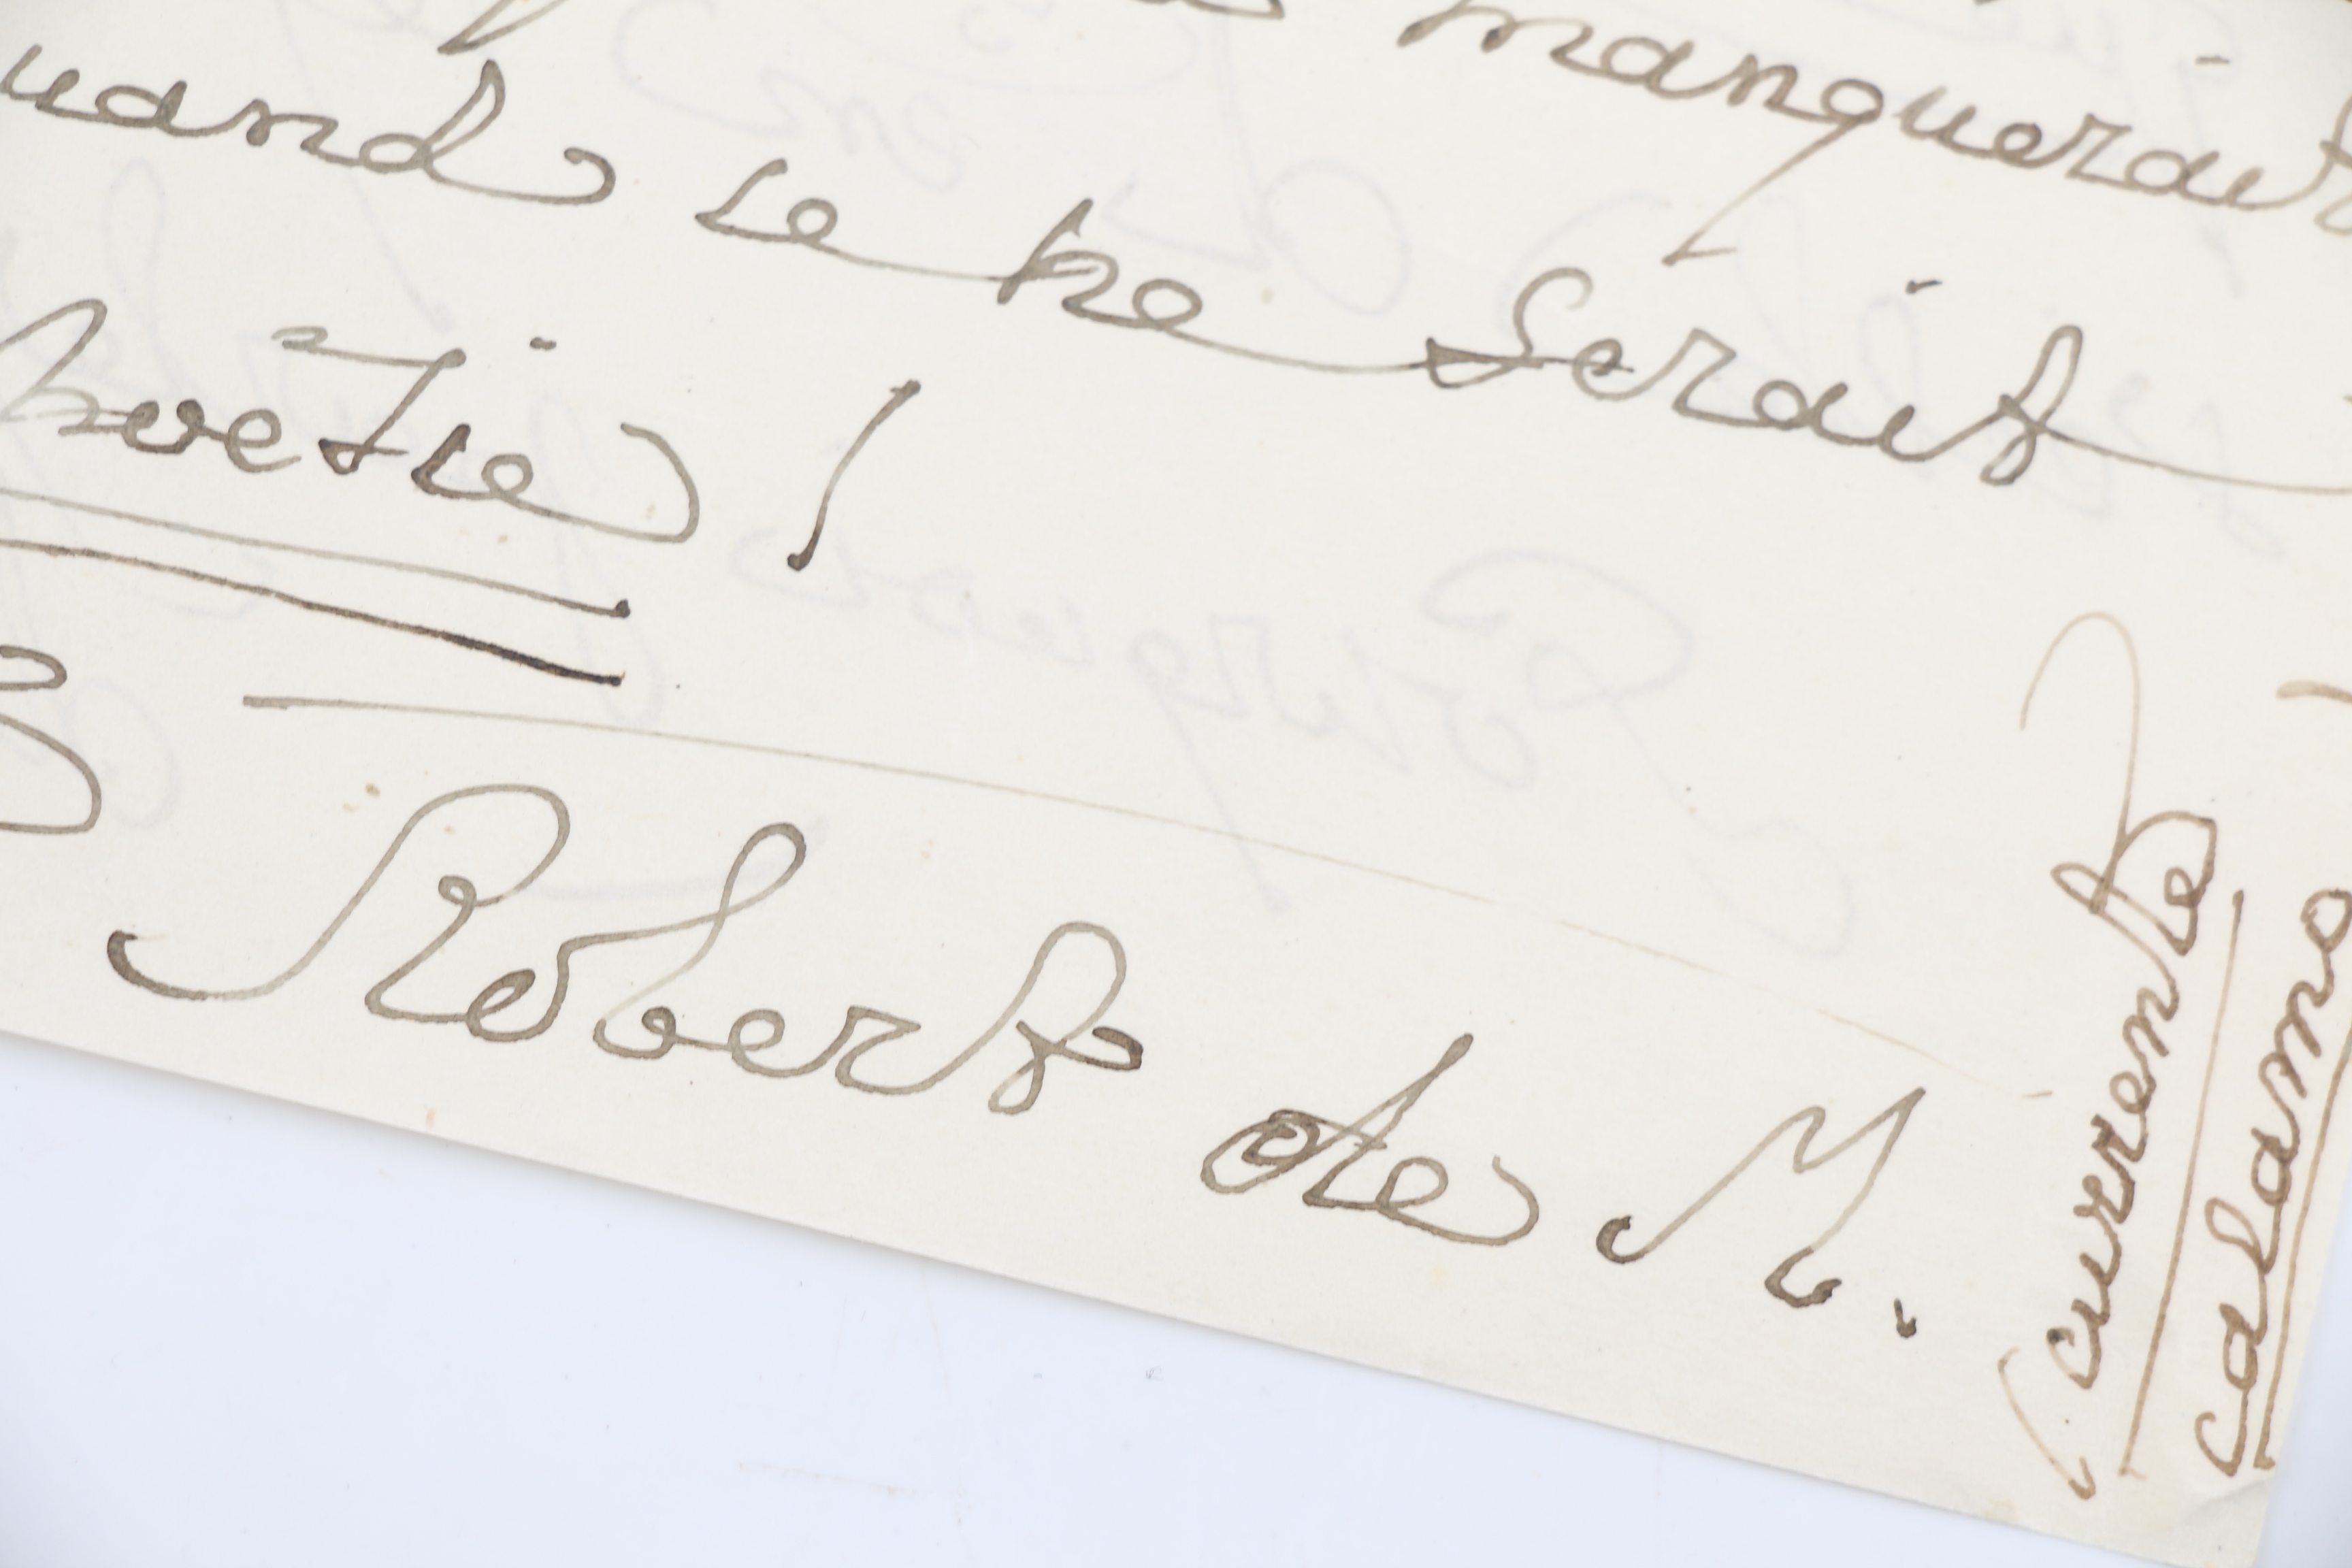 manquerait
uand ce ne serait
Robert de M.
(currente
calamo)